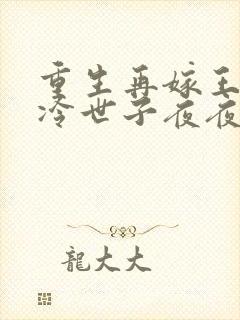 重生再嫁王
冷世子夜夜
龍大大